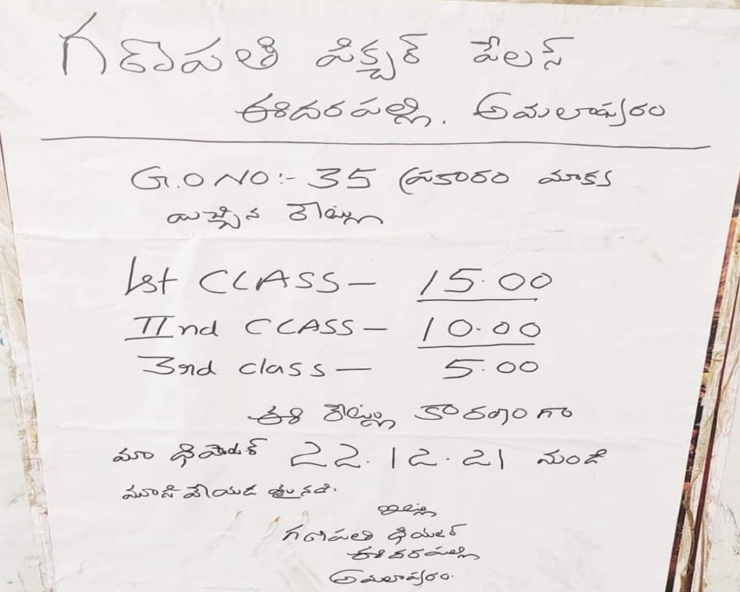 గణపతి పిక్చర్ పేలస్
ఈదరపల్లి. అమలాపురం
G.O NO:- 35 ప్రకారం మాకు
యిచ్చిన రేట్లు
1st CLASS- 15.00
IInd CLASS- 10.00
3rd class- 5.00
ఈ రేట్లు కారణంగా
మా థియేటర్ 22.12.21 నుండి
మూసి వేయబడుచున్నది.
ఇట్లు
గణపతి థియేటర్
ఈదరపల్లి
అమలాపురం.